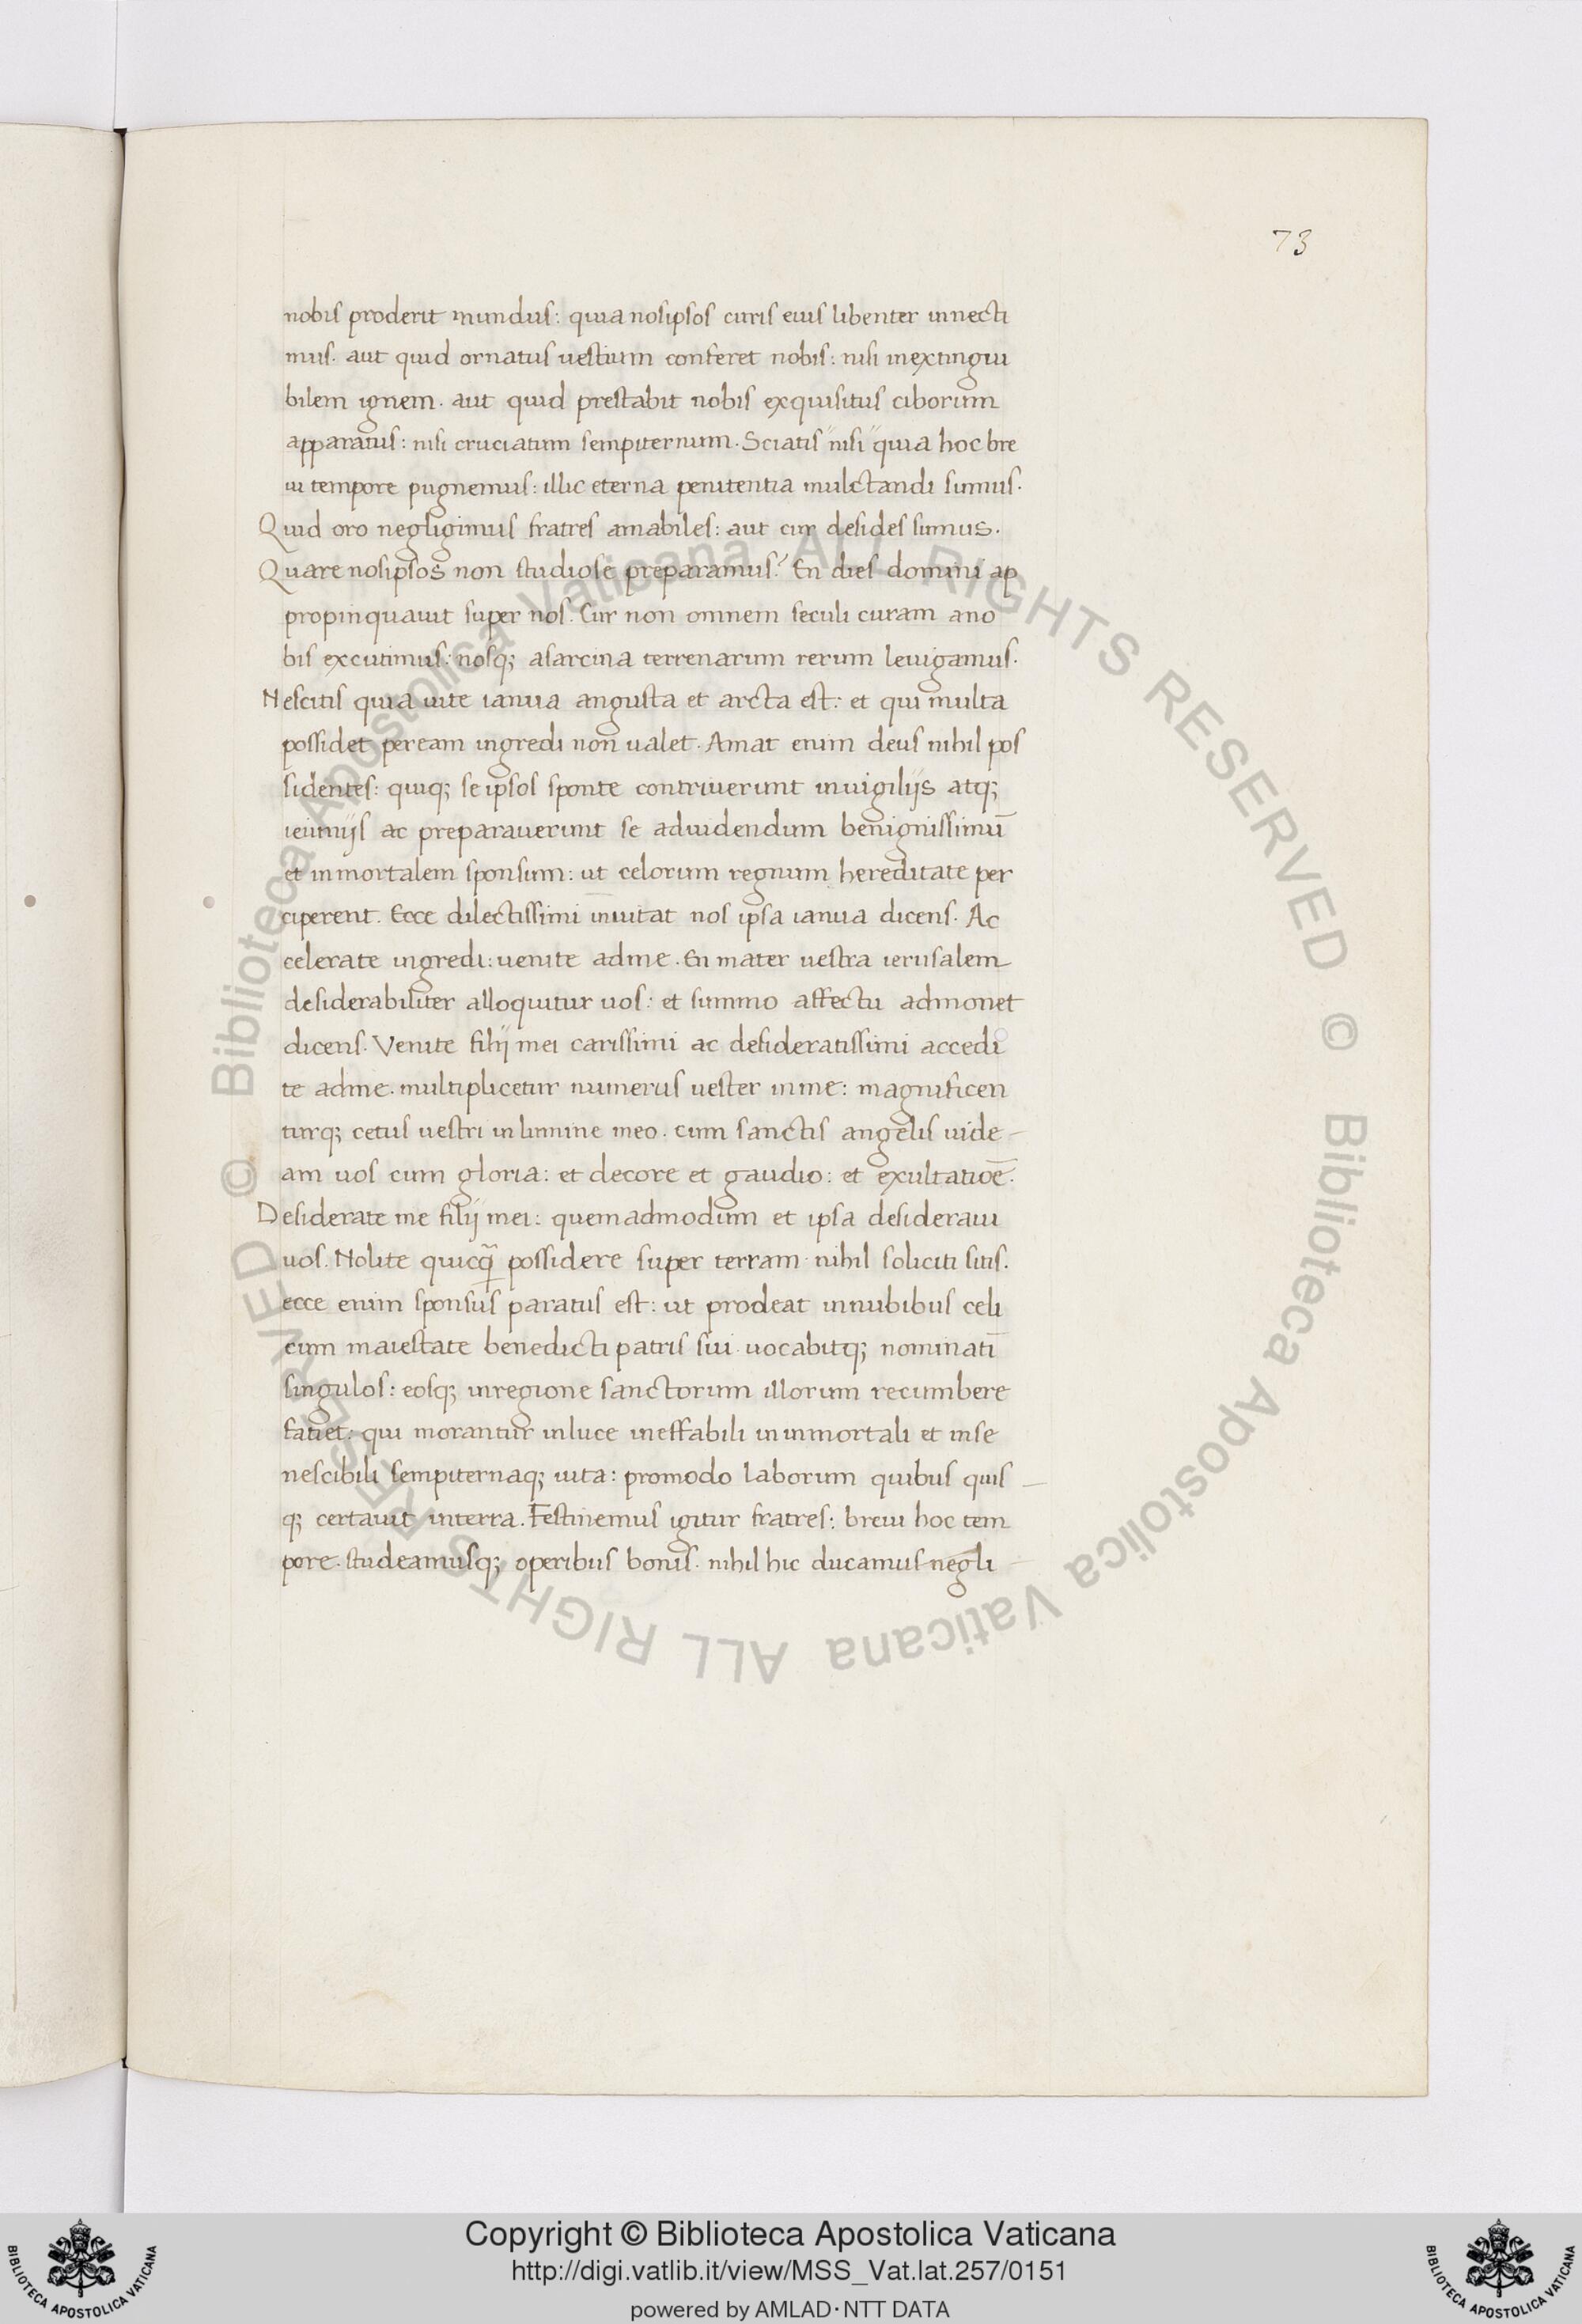 73
nobis proderit mundus: quia nosipsos curis eius libenter innecti
mus. aut quid ornatus uestium conferet nobis: nisi inextingui
bilem ignem. aut quid prestabit nobis exquisitus ciborum
apparatus: nisi cruciatum sempiternum. Sciatis "nisi" quia hoc bre
ui tempore pugnemus: illic eterna penitentia mulctandi sumus.
Quid oro negligimus fratres amabiles: aut cur desides sumus.
Quare nosipsos non studiose preparamus? En dies domini ap
propinquauit super nos. Cur non omnem seculi curam ano
bis excutimus: nosq; asarcina terrenarum rerum leuigamus.
Nescitis quia uite ianua angusta et arcta est: et qui multa
possidet peream ingredi non ualet. Amat enim deus nihil pos
sidentes: quiq; se ipsos sponte contriuerunt inuigilijs atq;
ieiunijs ac preparauerunt se aduidendum benignissimū
et inmortalem sponsum: ut celorum regnum hereditate per
ciperent. Ecce dilectissimi inuitat nos ipsa ianua dicens. Ac
celerate ingredi: uenite adme. En mater uestra ierusalem
desiderabiliter alloquitur uos: et summo affectu admonet
dicens. Venite filij mei carissimi ac desideratissimi accedi
te adme. multiplicetur numerus uester inme: magnificen
turq; cetus uestri inlimine meo. cum sanctis angelis uide-
am uos cum gloria: et decore et gaudio: et exultatioē.
Desiderate me filij mei: quemadmodum et ipsa desideraui
uos. Nolite quicq̃ possidere super terram. nihil soliciti sitis.
ecce enim sponsus paratus est: ut prodeat innubibus celi
cum maiestate benedicti patris sui. uocabitq; nominatī
singulos: eosq; inregione sanctorum illorum recumbere
fatiet: qui morantur inluce ineffabili in inmortali et inse
nescibili sempiternaq; uita: promodo laborum quibus quis-
q; certauit interra. Festinemus igitur fratres: breui hoc tem
pore. studeamusq; operibus bonis. nihil hic ducamus negli-
© Biblioteca Apostolica Vaticana ALL RIGHTS RESERVED © Biblioteca Apostolica Vaticana ALL RIGHTS RESERVED
Copyright © Biblioteca Apostolica Vaticana
http://digi.vatlib.it/view/MSS_Vat.lat.257/0151
powered by AMLAD·NTT DATA
BIBLIOTECA APOSTOLICA VATICANA
BIBLIOTECA APOSTOLICA VATICANA